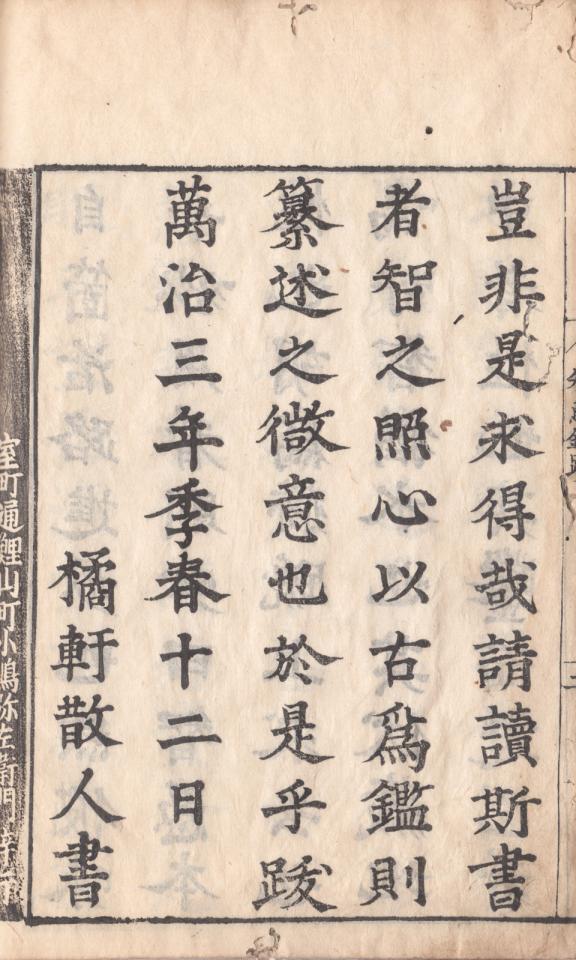 豈非是求得哉請讀斯書
者智之照心以古爲鑑則
纂述之微意也於是乎跋
萬治三年季春十二日
橘軒散人書
室町通鯉山町小嶋弥左衛門